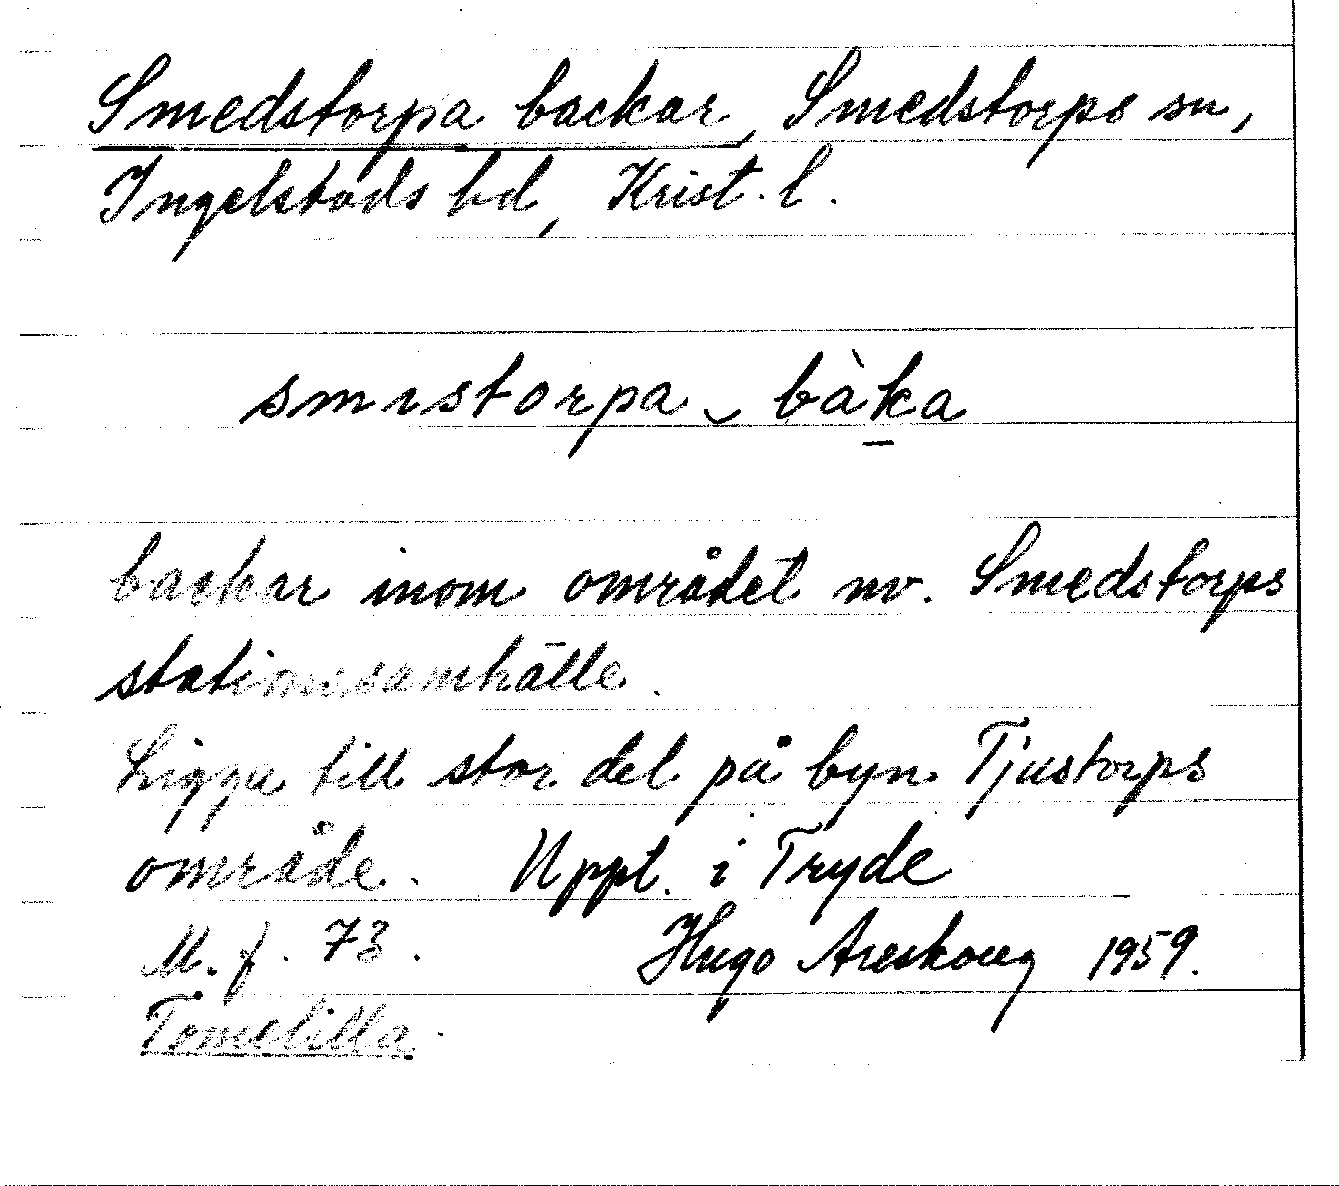 Smedstorpa backar, Smedstorps sn,
Ingelstads hd, Krist. l.
smıstorpa ˬ bàk̲a
backar inom området nv. Smedstorps
stationssamhälle.
Ligga till stor del på byn Tjustorps
område. Uppt. i Tryde
M. f. 73. Hugo Areskoug 1959.
Tomelilla.